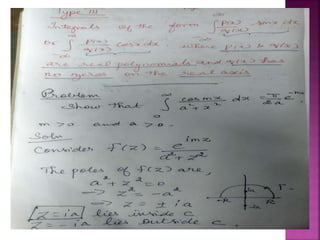 Type III
Integrals of the form ∫_{-∞}^{∞} p(x)/q(x) sinx dx
or ∫_{-∞}^{∞} p(x)/q(x) cosx dx, where p(x) & q(x)
are real polynomials and q(x) has
no zeros on the real axis
Problem
Show that ∫_0^∞ cosmx/(a²+x²) dx = π/2a e^{-ma},
m>0 and a>0.
Soln
Consider f(z) = e^{imz}/(a²+z²)
The poles of f(z) are,
a²+z²=0
⇒ z² = -a²
⇒ z = ± ia
z=ia lies inside C
z=-ia lies outside C.
ia
Γ
-R
R
-ia